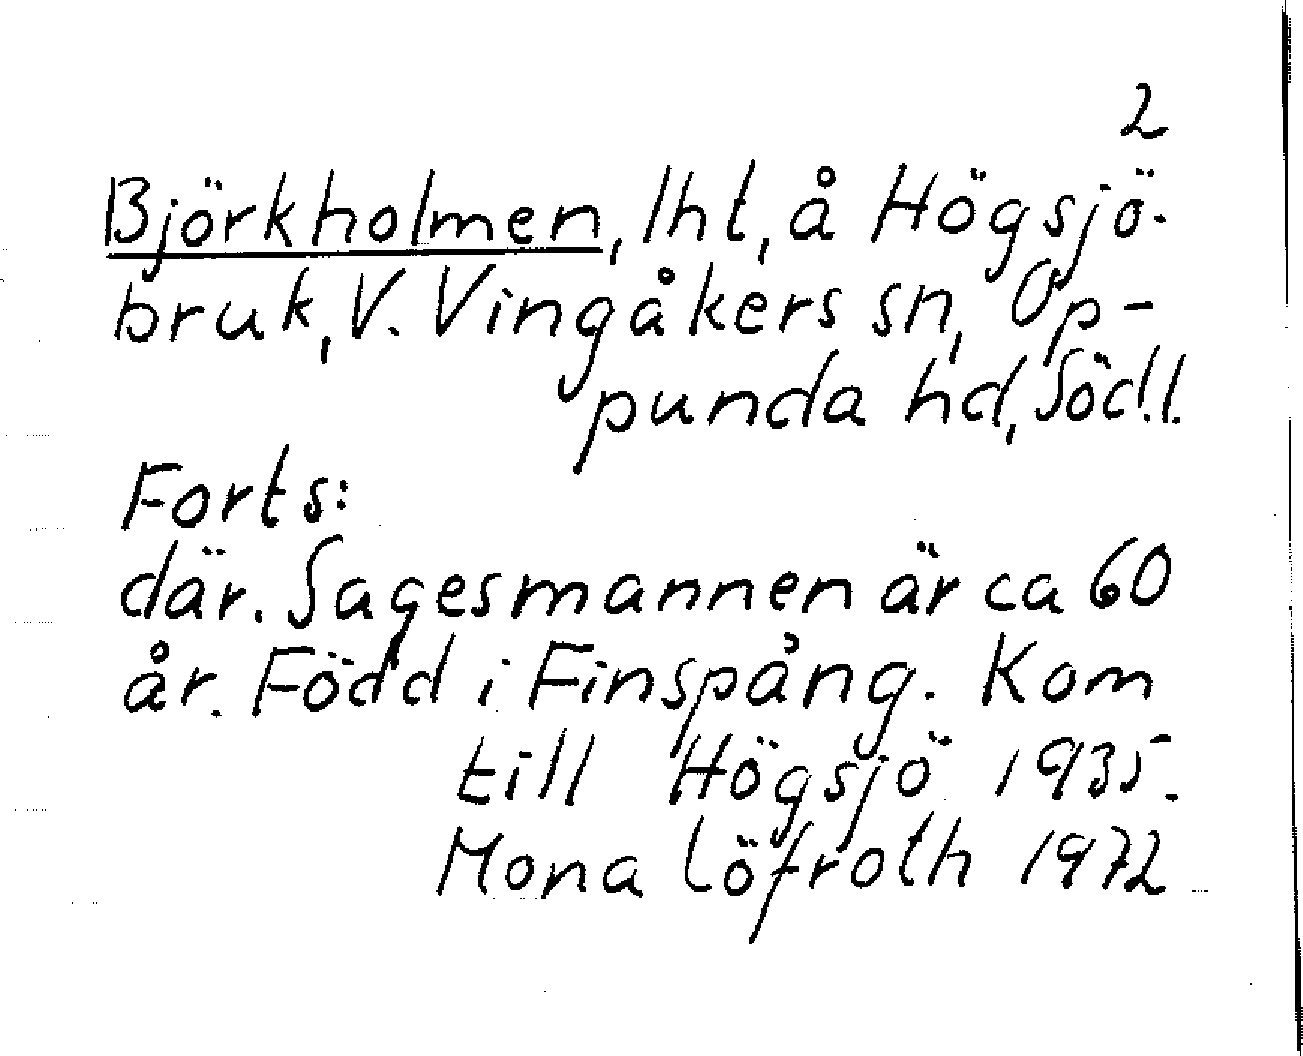 2
Björkholmen, lht, å Högsjö-
bruk, V. Vingåkers sn, Op-
punda hd, Söd.l.
Forts:
där. Sagesmannen är ca 60
år. Född i Finspång. Kom
till Högsjö 1935.
Mona Löfroth 1972